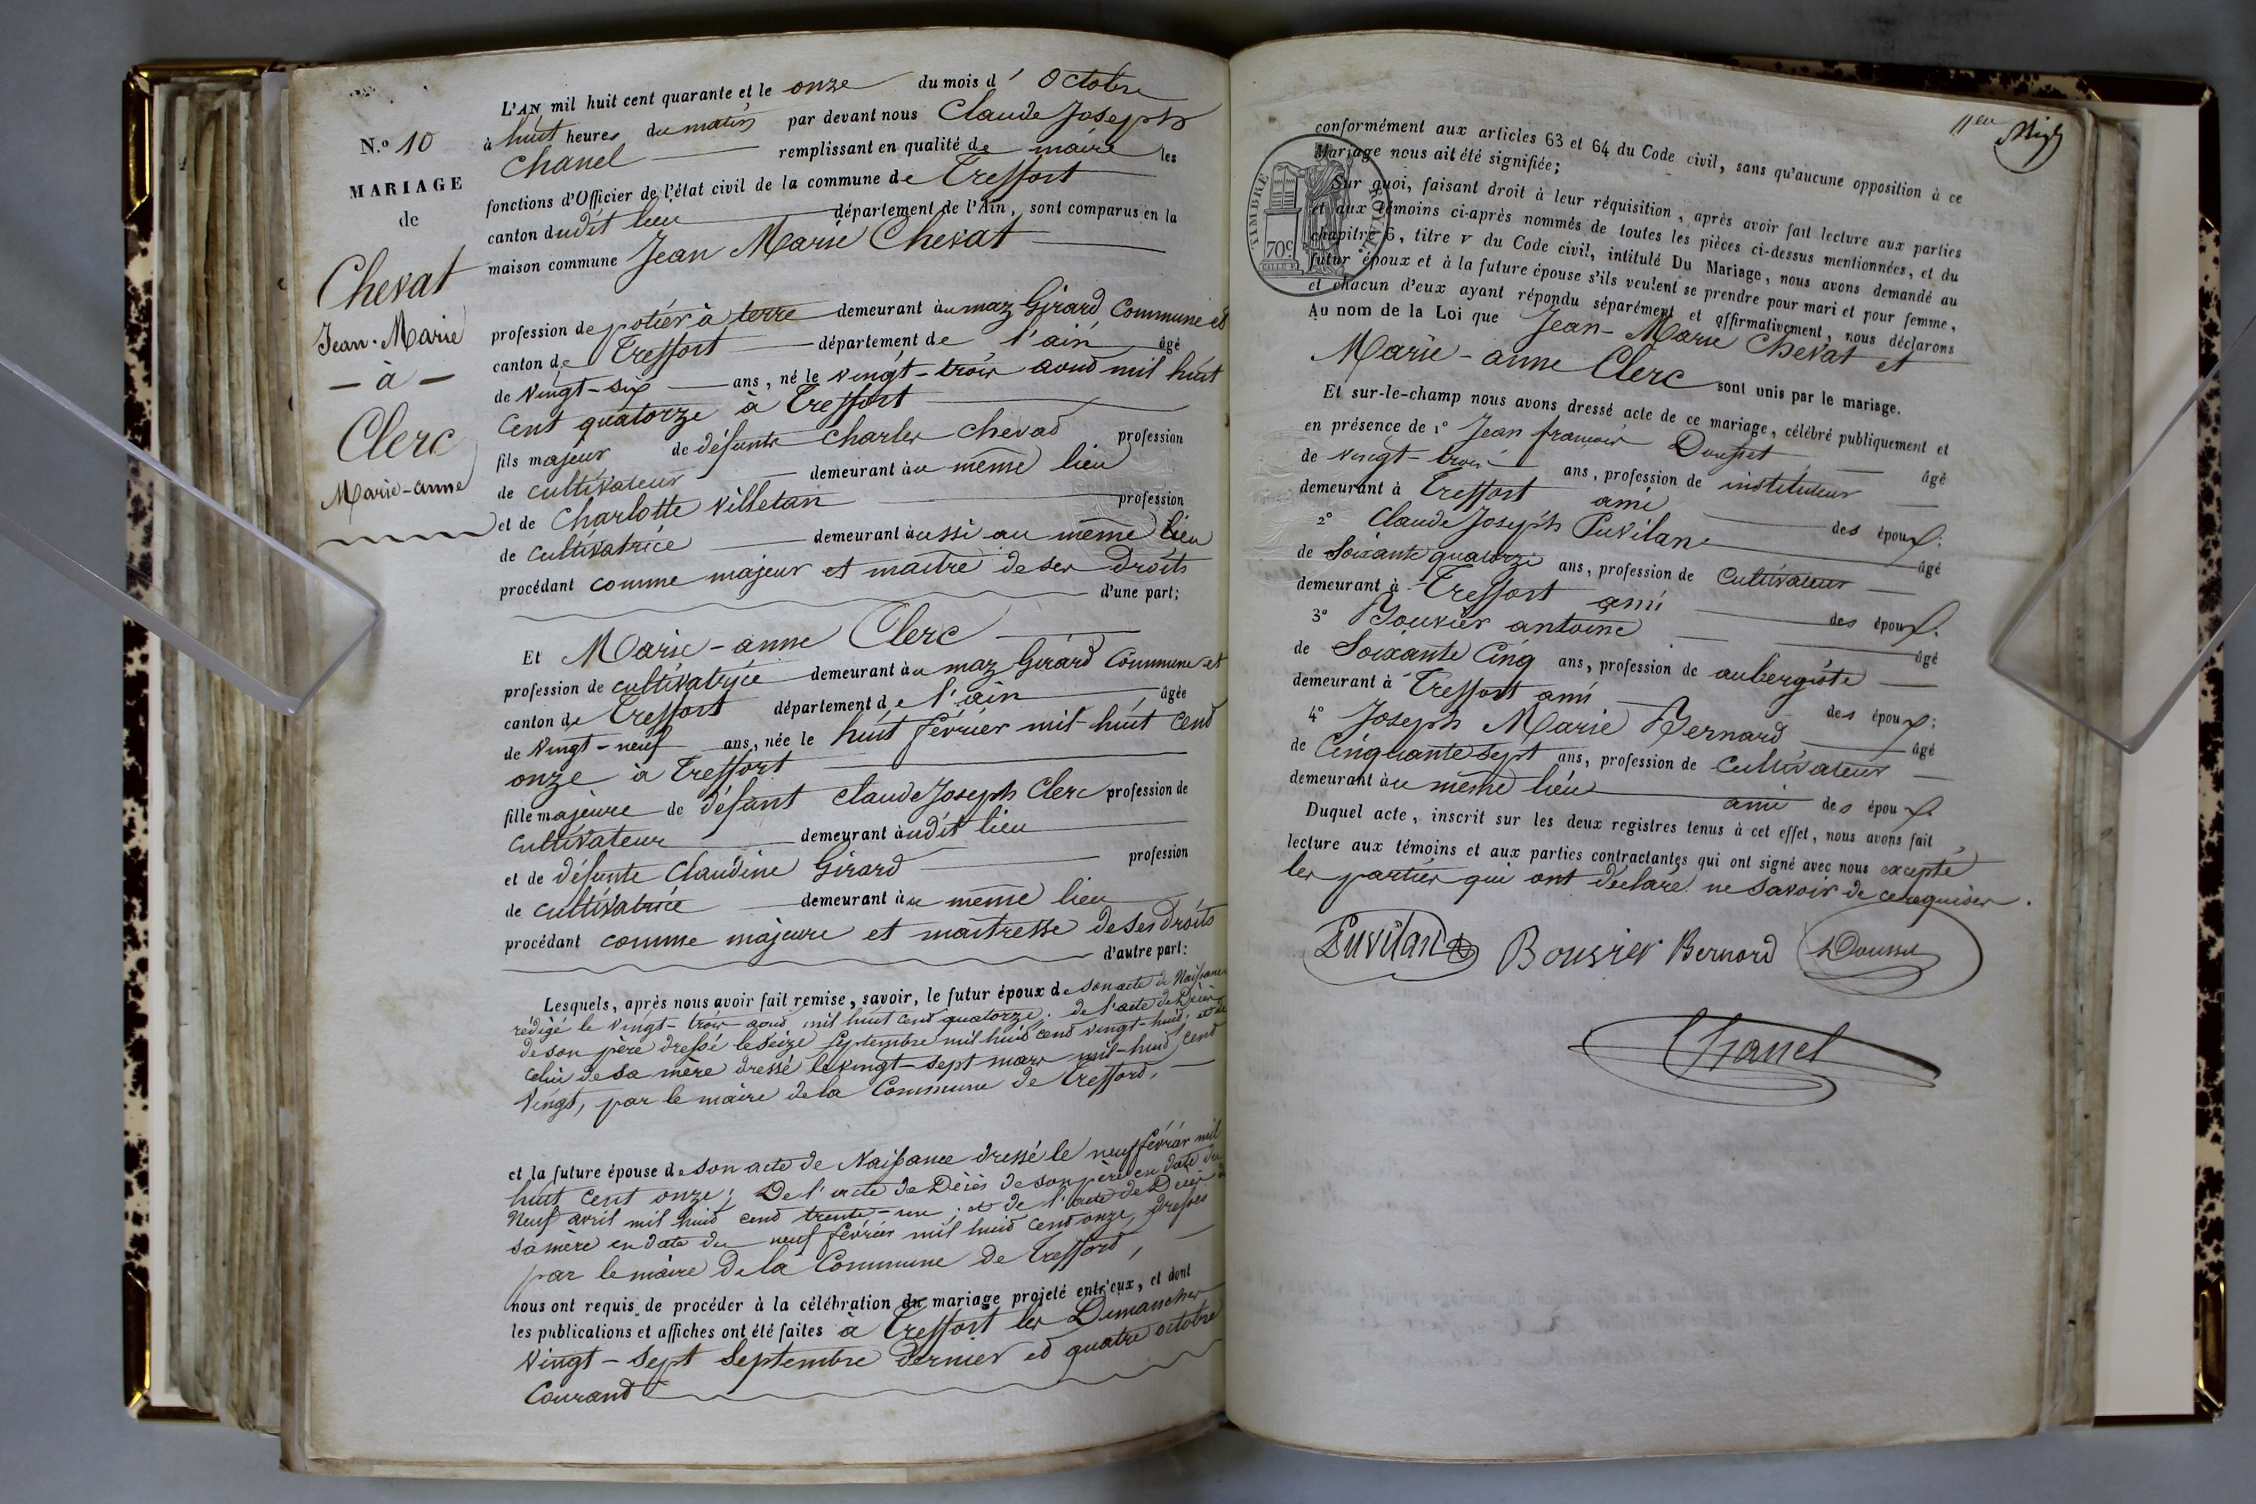 N.º 10
MARIAGE
de
Chevat
Jean-Marie
— à —
Clerc
Marie-anne
L'AN mil huit cent quarante et le onze du mois d' Octobre
à huit heures du matin par devant nous Claude Joseph
Chanel remplissant en qualité de maire les
fonctions d'Officier de l'état civil de la commune de Treffort
canton dudit lieu département de l'Ain, sont comparus en la
maison commune Jean Marie Chevat
profession de potier à terre demeurant au maz Girard Commune et
canton de Treffort département de l'ain âgé
de vingt-six ans, né le vingt-trois aoud mil huit
Cent quatorze à Treffort
fils majeur de défunts Charles Chevad profession
de cultivateur demeurant au même lieu
et de Charlotte Villetan profession
de cultivatrice demeurant aussi au même lieu
procédant comme majeur et maitre de ses Droits
d'une part;
Et Marie-anne Clerc
profession de cultivatrice demeurant au maz Girard Commune et
canton de Treffort département de l'ain âgée
de vingt-neuf ans, née le huit février mil huit cend
onze à Treffort
fille majeure de défunt Claude Joseph Clerc profession de
cultivateur demeurant audit lieu
et de défunte Claudine Girard profession
de cultivatrice demeurant au même lieu
procédant comme majeure et maitresse de ses Droits
d'autre part:
Lesquels, après nous avoir fait remise, savoir, le futur époux de son acte de Naissance
rédigé le vingt-trois aoud mil huit cend quatorze; de l'acte de Décès
de son père dressé le seize Septembre mil huid cend vingt-huid; et de
celui de sa mère dressé le vingt-sept mars mil-huid cend
vingt, par le maire de la Commune de Trefford,
et la future épouse de son acte de Naissance dressé le neuf février mil
huit cent onze; De l'acte de Décès de son père en date du
Neuf avril mil huid cend trente-un; et de l'acte de Décès de
sa mère en date du neuf février mil huid cend onze, dressés
par le maire de la Commune de Trefford,
nous ont requis de procéder à la célébration du mariage projeté entr'eux, et dont
les publications et affiches ont été faites à Treffort les Dimanches
vingt-sept Septembre dernier ed quatre octobre
Courand
TIMBRE ROYAL
70c
conformément aux articles 63 et 64 du Code civil, sans qu'aucune opposition à ce
Mariage nous ait été signifiée;
Sur quoi, faisant droit à leur réquisition, après avoir fait lecture aux parties
et aux témoins ci-après nommés de toutes les pièces ci-dessus mentionnées, et du
chapitre 6, titre v du Code civil, intitulé Du Mariage, nous avons demandé au
futur époux et à la future épouse s'ils veulent se prendre pour mari et pour femme,
et chacun d'eux ayant répondu séparément et affirmativement, nous déclarons
Au nom de la Loi que Jean-Marie Chevat et
Marie-anne Clerc sont unis par le mariage.
Et sur-le-champ nous avons dressé acte de ce mariage, célébré publiquement et
en présence de 1º Jean françois Dousset âgé
de vingt-trois ans, profession de instituteur
demeurant à Treffort ami des époux.
2º Claude Joseph Puvilan âgé
de Soixante quatorze ans, profession de Cultivateur
demeurant à Treffort ami des époux.
3º Bouvier antoine âgé
de Soixante Cinq ans, profession de aubergiste
demeurant à Treffort ami des époux;
4º Joseph Marie Bernard âgé
de Cinquante sept ans, profession de Cultivateur
demeurant au même lieu ami des époux
Duquel acte, inscrit sur les deux registres tenus à cet effet, nous avons fait
lecture aux témoins et aux parties contractantes qui ont signé avec nous excepté
les parties qui ont déclaré ne savoir de ce requises.
Puvilan Bouvier Bernard Dousset
Chanel